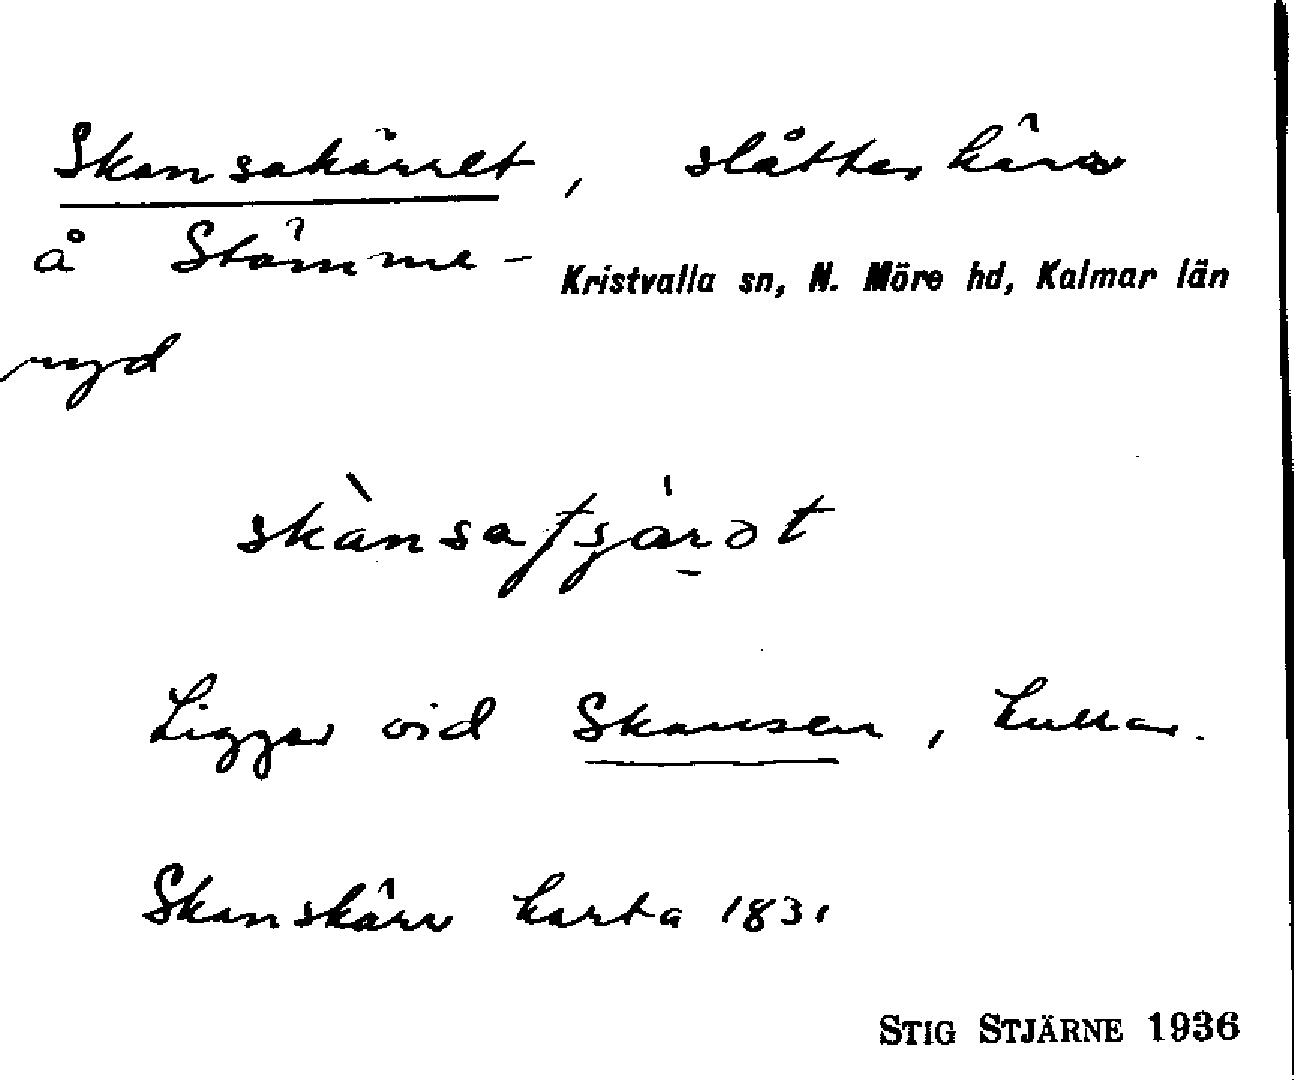 Skansakärret, slåtterkärr
å Stämme-
Kristvalla sn, N. Möre hd, Kalmar län
ryd
skànsatʃärət
Ligger vid Skansen, kullar.
Skanskärr karta 1831
STIG STJÄRNE 1936